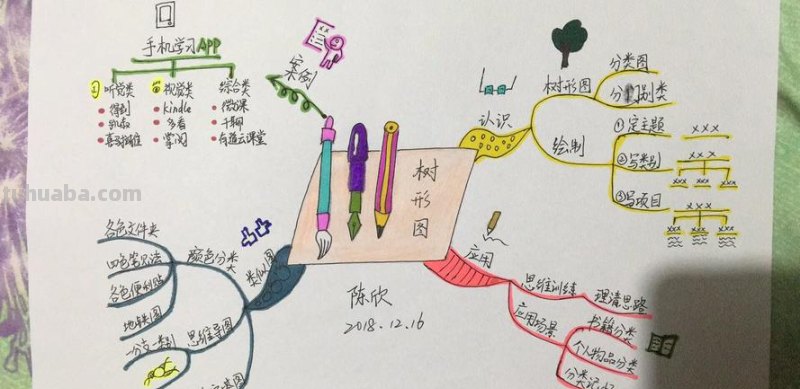 手机学习APP
听觉类
视觉类
综合类
得到
kindle
微课
多看
千聊
掌阅
有道云课堂
案例
树形图
陈欣
2018.12.16
认识
树形图
分类图
绘制
①定主题
xxx
②写类别
xxx
xxx xxx xxx
③写项目
xxx
xxx xxx xxx
应用
思维训练
理清思路
应用场景
书籍分类
个人物品分类
类似图
颜色分类
各色文件夹
四色笔记法
各色便利贴
地铁图
思维导图
一分支一类别
tuhuaba.com